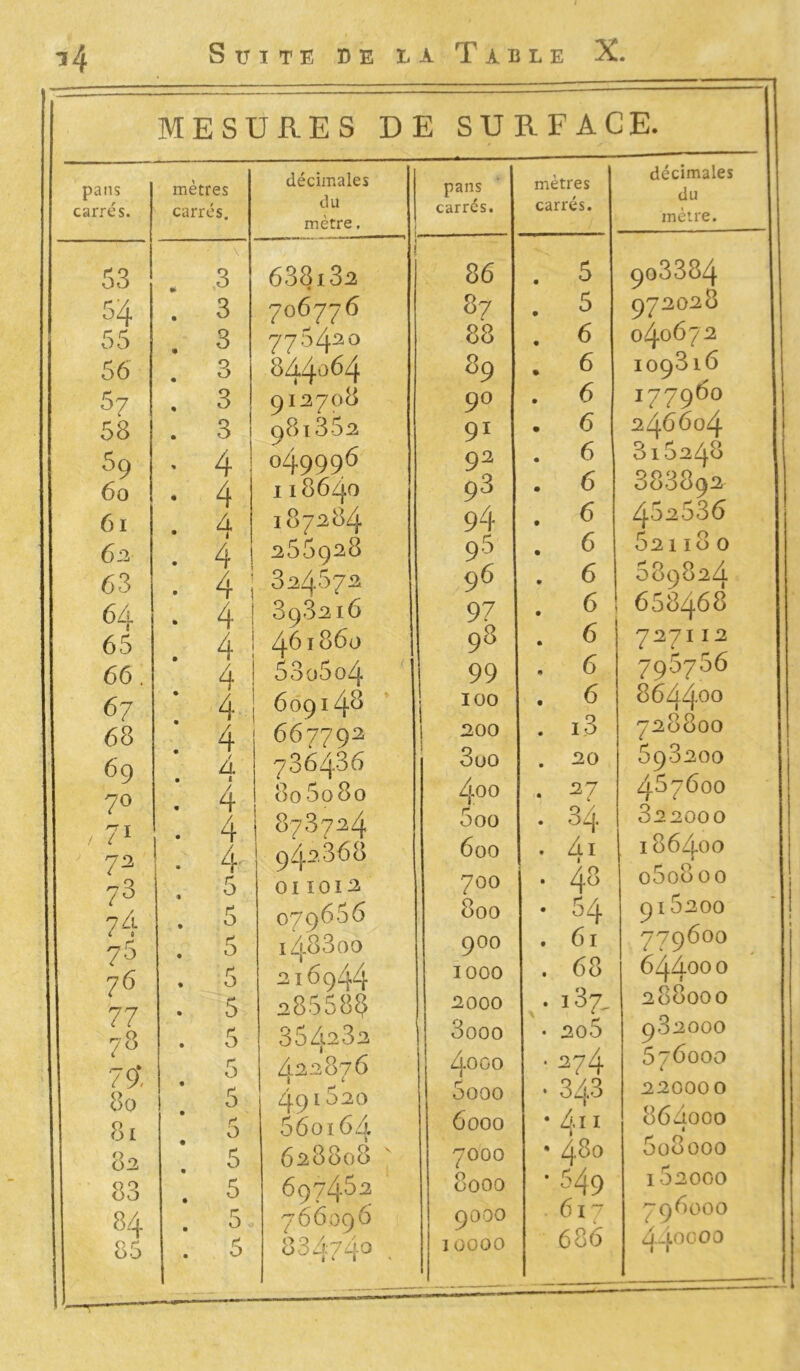 14 SUITE DE LA TABLE X.
MESURES DE SURFACE.
pans carrés. mètres carrés. décimales du mètre.
53 . 3 638132
54 . 3 706776
55 . 3 775420
56 . 3 844064
57 . 3 912708
58 . 3 981352
59 . 4 049996
60 . 4 118640
61 . 4 187284
62 . 4 255928
63 . 4 324572
64 . 4 393216
65 . 4 461860
66 . 4 530504
67 . 4 609148
68 . 4 667792
69 . 4 736436
70 . 4 805080
71 . 4 873724
72 . 4 942368
73 . 5 011012
74 . 5 079656
75 . 5 148300
76 . 5 216944
77 . 5 285588
78 . 5 354232
79 . 5 422876
80 . 5 491520
81 . 5 560164
82 . 5 628808
83 . 5 697452
84 . 5 766096
85 . 5 834740
pans carrés. mètres carrés. décimales du mètre.
86 . 5 903384
87 . 5 972028
88 . 6 040672
89 . 6 109316
90 . 6 177960
91 . 6 246604
92 . 6 315248
93 . 6 383892
94 . 6 452536
95 . 6 521180
96 . 6 589824
97 . 6 658468
98 . 6 727112
99 . 6 795756
100 . 6 864400
200 . 13 728800
300 . 20 593200
400 . 27 457600
500 . 34 322000
600 . 41 186400
700 . 48 050800
800 . 54 915200
900 . 61 779600
1000 . 68 644000
2000 . 137 288000
3000 . 205 932000
4000 . 274 576000
5000 . 343 220000
6000 . 411 864000
7000 . 480 508000
8000 . 549 152000
9000 . 617 796000
10000 686 440000